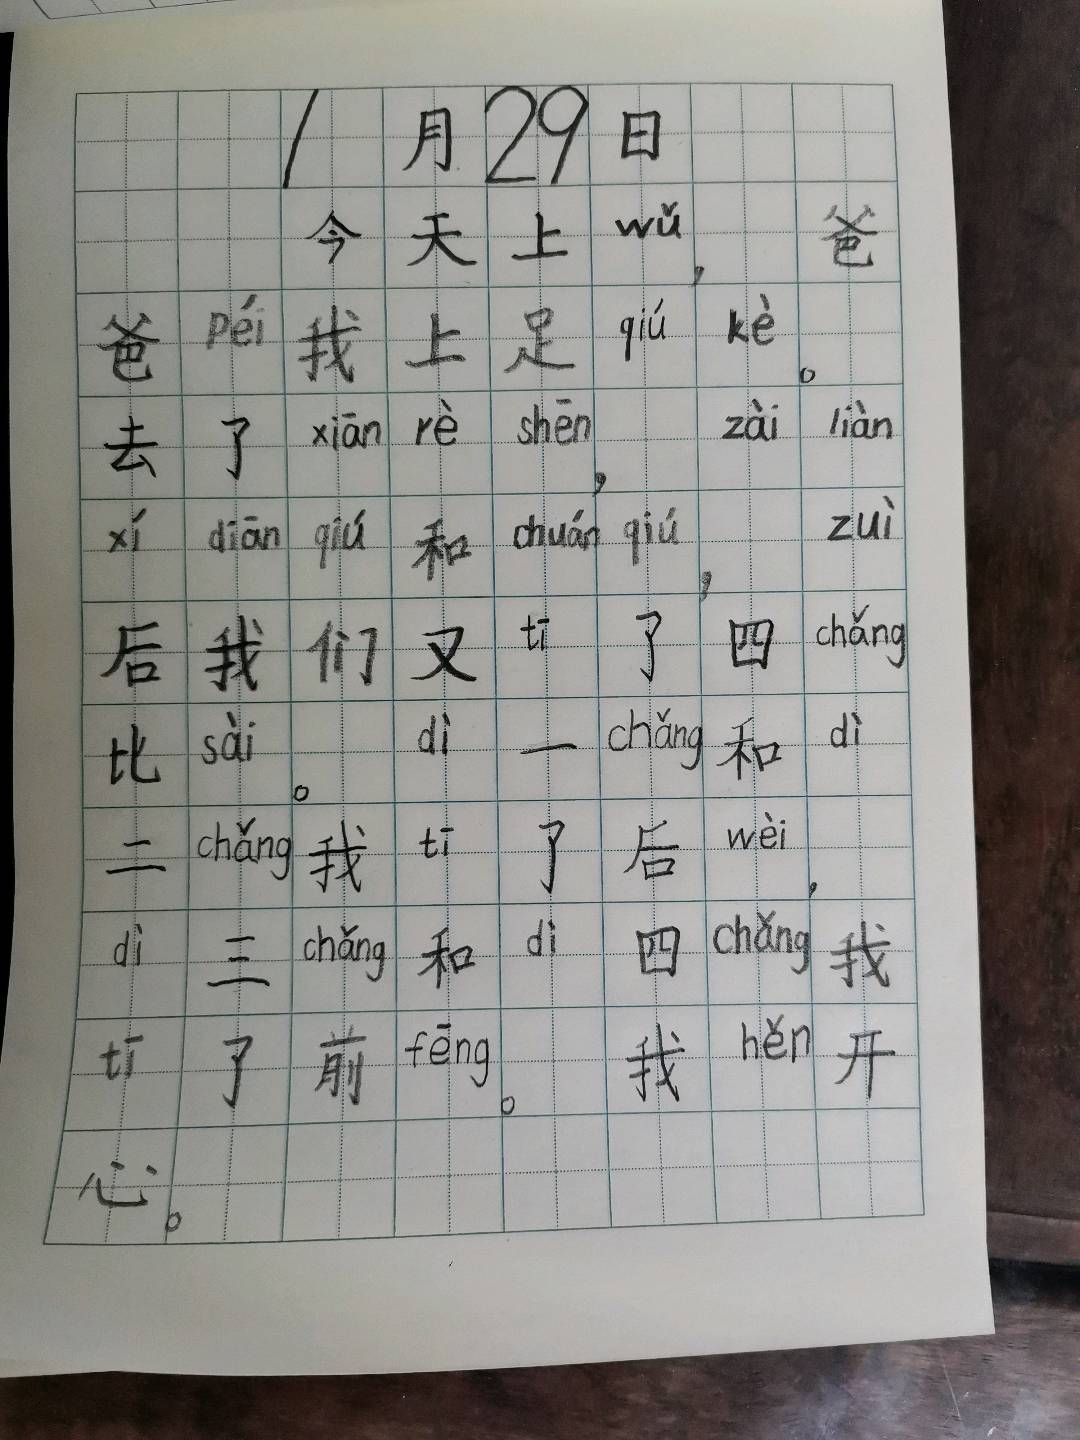 1月29日
今天上wǔ，爸
爸péi我上足qiú kè。
去了xiān rè shēn，zài liàn
xí diān qiú和chuán qiú，zuì
后我们又tī了四chǎng
比sài。dì一chǎng和dì
二chǎng我tī了后wèi，
dì三chǎng和dì四chǎng我
tī了前fēng。我hěn开
心。